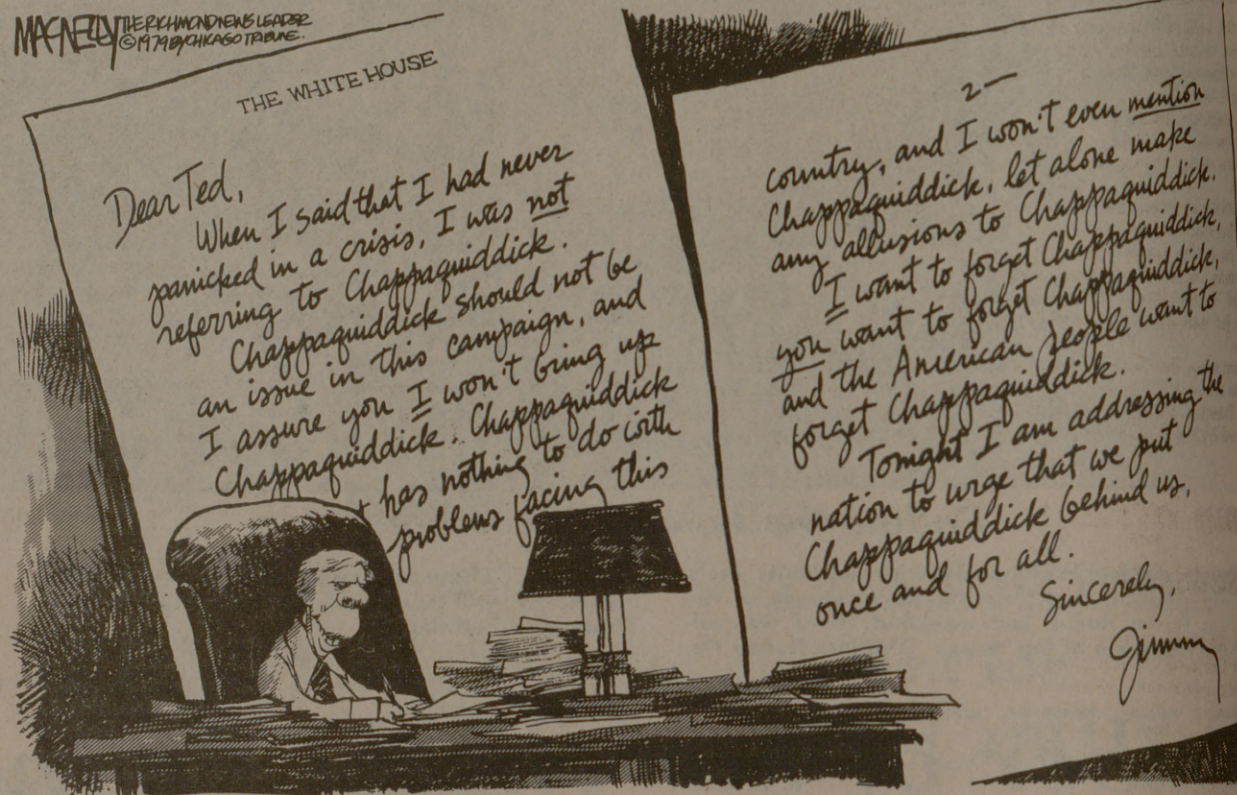 MACNELLY
THE RICHMOND NEWS LEADER
© 1979 BY CHICAGO TRIBUNE.
THE WHITE HOUSE
Dear Ted,
When I said that I had never
panicked in a crisis, I was not
referring to Chappaquiddick.
Chappaquiddick should not be
an issue in this campaign, and
I assure you I won't bring up
Chappaquiddick. Chappaquiddick
has nothing to do with
problems facing this
2-
country, and I won't even mention
Chappaquiddick, let alone make
any allusions to Chappaquiddick.
I want to forget Chappaquiddick,
you want to forget Chappaquiddick,
and the American people want to
forget Chappaquiddick.
Tonight I am addressing the
nation to urge that we put
Chappaquiddick behind us,
once and for all.
Sincerely,
Jimmy